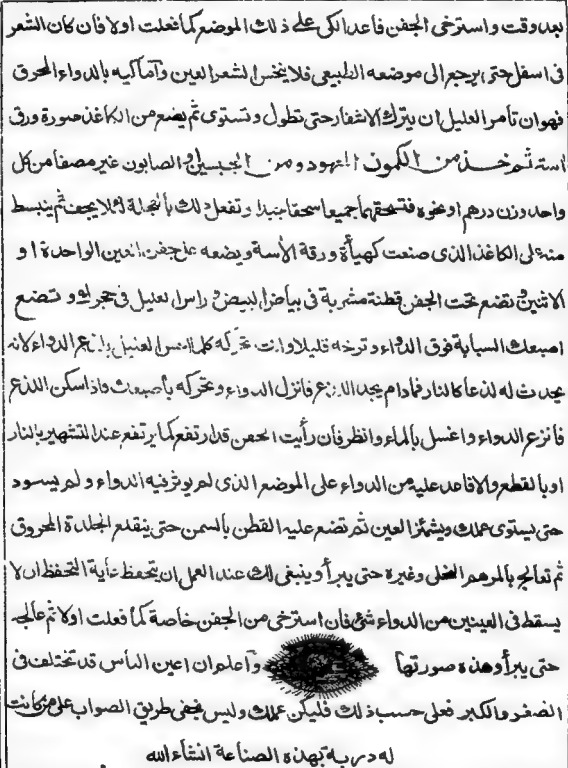 بعد وقت واسترخى الجفن فاعد الكى على ذلك الموضع كما فعلت اولا فان كان الشعر
فى اسفل حتى يرجع الى موضعه الطبيعى فلا ينخس الشعر العين وأما كيه بالدواء المحرق
فهوان تأمر العليل ان يترك الاشفار حتى تطول وتستوى ثم يضع من الكاغذ صورة ورق
اسة ثم خذ من الصابون غير مصفا من كل
واحد وزن درهم او نحوه فتسحقهما جميعا سحقا جيدا وتفعل ذلك بالعجلة لئلا يجف ثم ينبسط
منه على الكاغذ الذى صنعت كهيأة ورقة الأسة ويضعه على جفن العين الواحدة او
الاثنين وتضع تحت الجفن قطنة مشربة فى بياض البيض وراس العليل فى حجرك وتضع
اصبعك السبابة فوق الدواء وترخه قليلا وانت تحركه كلما العليل الدواء لانه
يحدث له لذعا كالنار فمادام يجد اللذع فانزل الدواء وتحركه بأصبعك فاذا سكن اللذع
فانزع الدواء واغسل بالماء وانظر فان رأيت الجفن قد ارتفع كما يرتفع عند التشهير بالنار
او بالقطع والا فاعد عليه من الدواء على الموضع الذى لم يوثر فيه الدواء ولم يسود
حتى يستوى عملك ويشمئز العين ثم تضع عليه القطن بالسمن حتى ينقلع الجلدة المحروق
ثم تعالج بالمرهم النخلى وغيره حتى يبرأ وينبغى لك عند العمل ان تتحفظ غاية التحفظ ان لا
يسقط فى العينين من الدواء شئ فان استرخى من الجفن خاصة كما فعلت اولا ثم عالجه
حتى يبرأ وهذه صورتها وأعلم ان اعين الناس قد تختلف فى
الصغر والكبر فعلى حسب ذلك فليكن عملك وليس يخفى طريق الصواب على من كانت
له دربة بهذه الصناعة انشاء الله